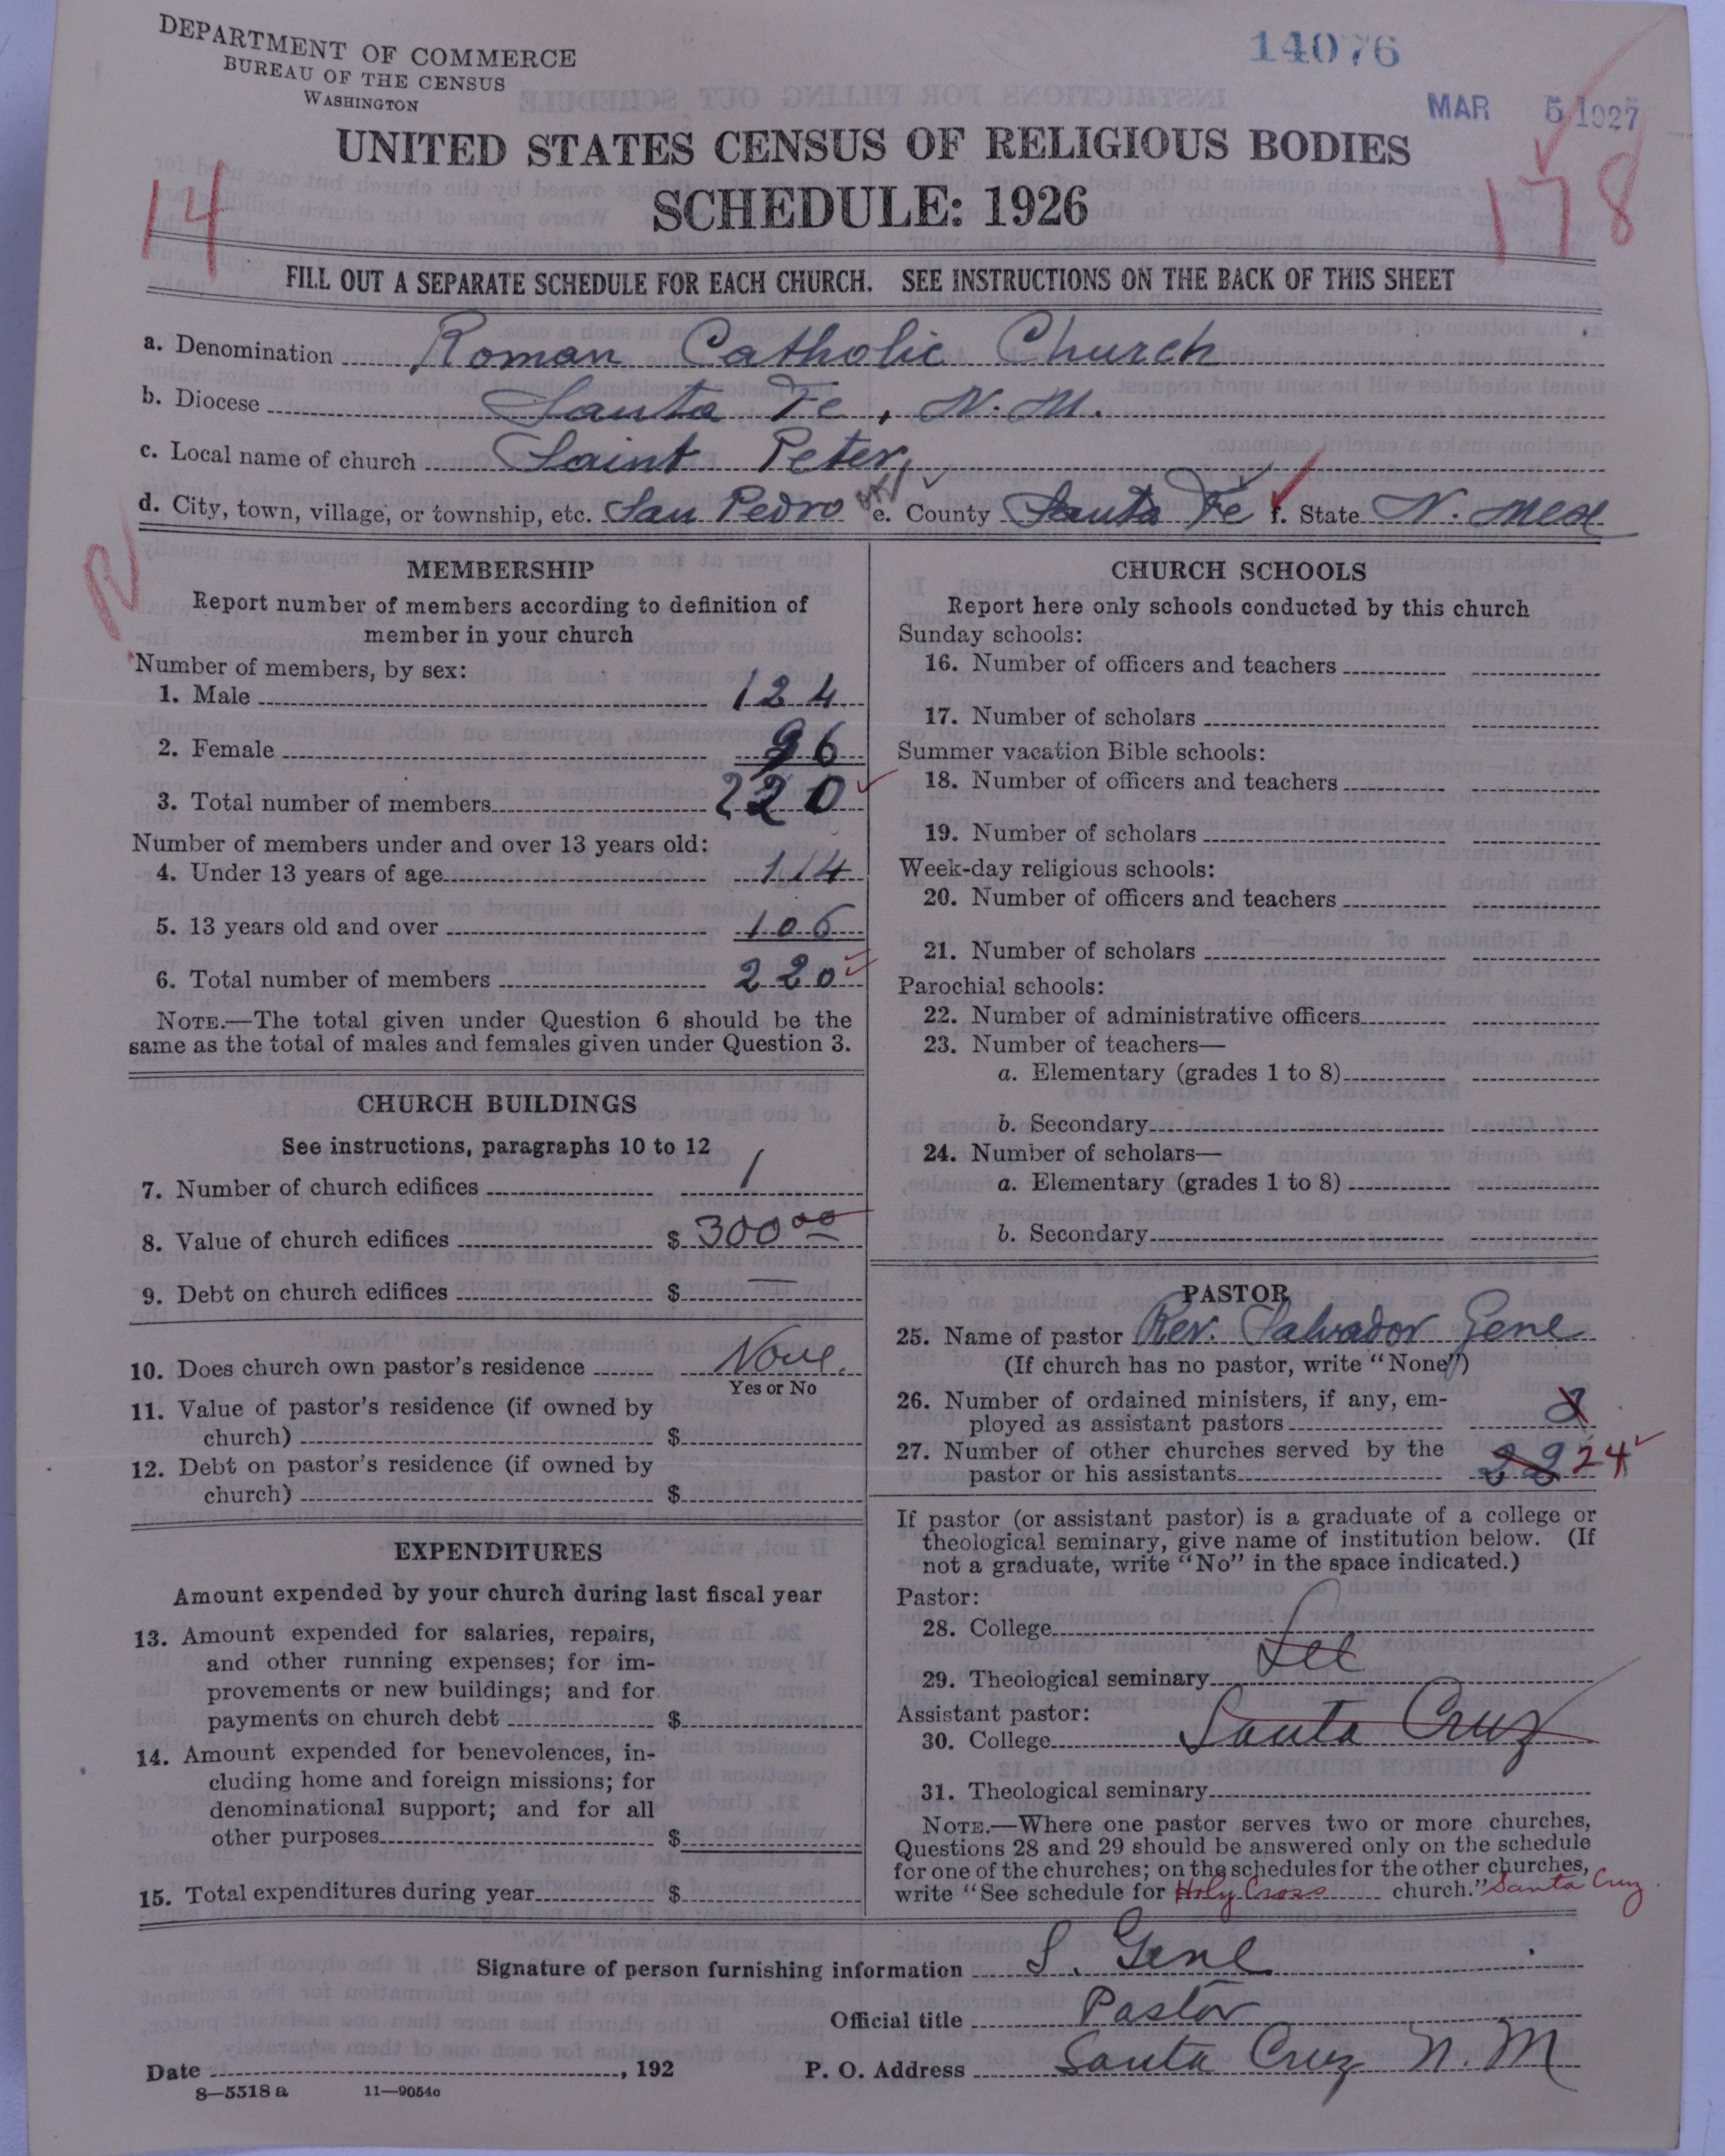 DEPARTMENT OF COMMERCE
BUREAU OF THE CENSUS
WASHINGTON
14076
MAR 5 1927
UNITED STATES CENSUS OF RELIGIOUS BODIES
SCHEDULE: 1926
14
178
FILL OUT A SEPARATE SCHEDULE FOR EACH CHURCH. SEE INSTRUCTIONS ON THE BACK OF THIS SHEET
a. Denomination Roman Catholic Church
b. Diocese Santa Fe, N. M.
c. Local name of church Saint Peter
d. City, town, village, or township, etc. San Pedro e. County Santa Fe f. State N. Mex
N
MEMBERSHIP
Report number of members according to definition of
member in your church
Number of members, by sex:
1. Male 124
2. Female 96
3. Total number of members 220
Number of members under and over 13 years old:
4. Under 13 years of age 114
5. 13 years old and over 106
6. Total number of members 220
NOTE.—The total given under Question 6 should be the
same as the total of males and females given under Question 3.
CHURCH BUILDINGS
See instructions, paragraphs 10 to 12
7. Number of church edifices 1
8. Value of church edifices $ 300 00
9. Debt on church edifices $ —
10. Does church own pastor's residence None.
Yes or No
11. Value of pastor's residence (if owned by
church) $
12. Debt on pastor's residence (if owned by
church) $
EXPENDITURES
Amount expended by your church during last fiscal year
13. Amount expended for salaries, repairs,
and other running expenses; for im-
provements or new buildings; and for
payments on church debt $
14. Amount expended for benevolences, in-
cluding home and foreign missions; for
denominational support; and for all
other purposes $
15. Total expenditures during year $
CHURCH SCHOOLS
Report here only schools conducted by this church
Sunday schools:
16. Number of officers and teachers
17. Number of scholars
Summer vacation Bible schools:
18. Number of officers and teachers
19. Number of scholars
Week-day religious schools:
20. Number of officers and teachers
21. Number of scholars
Parochial schools:
22. Number of administrative officers
23. Number of teachers—
a. Elementary (grades 1 to 8)
b. Secondary
24. Number of scholars—
a. Elementary (grades 1 to 8)
b. Secondary
PASTOR
25. Name of pastor Rev. Salvador Gene
(If church has no pastor, write "None")
26. Number of ordained ministers, if any, em-
ployed as assistant pastors 2
27. Number of other churches served by the
pastor or his assistants 22 24
If pastor (or assistant pastor) is a graduate of a college or
theological seminary, give name of institution below. (If
not a graduate, write "No" in the space indicated.)
Pastor:
28. College
29. Theological seminary See
Assistant pastor:
30. College Santa Cruz
31. Theological seminary
NOTE.—Where one pastor serves two or more churches,
Questions 28 and 29 should be answered only on the schedule
for one of the churches; on the schedules for the other churches,
write "See schedule for Holy Cross church." Santa Cruz
Signature of person furnishing information S. Gene
Official title Pastor
Date , 192 P. O. Address Santa Cruz N. M
8—5518 a 11—9054o